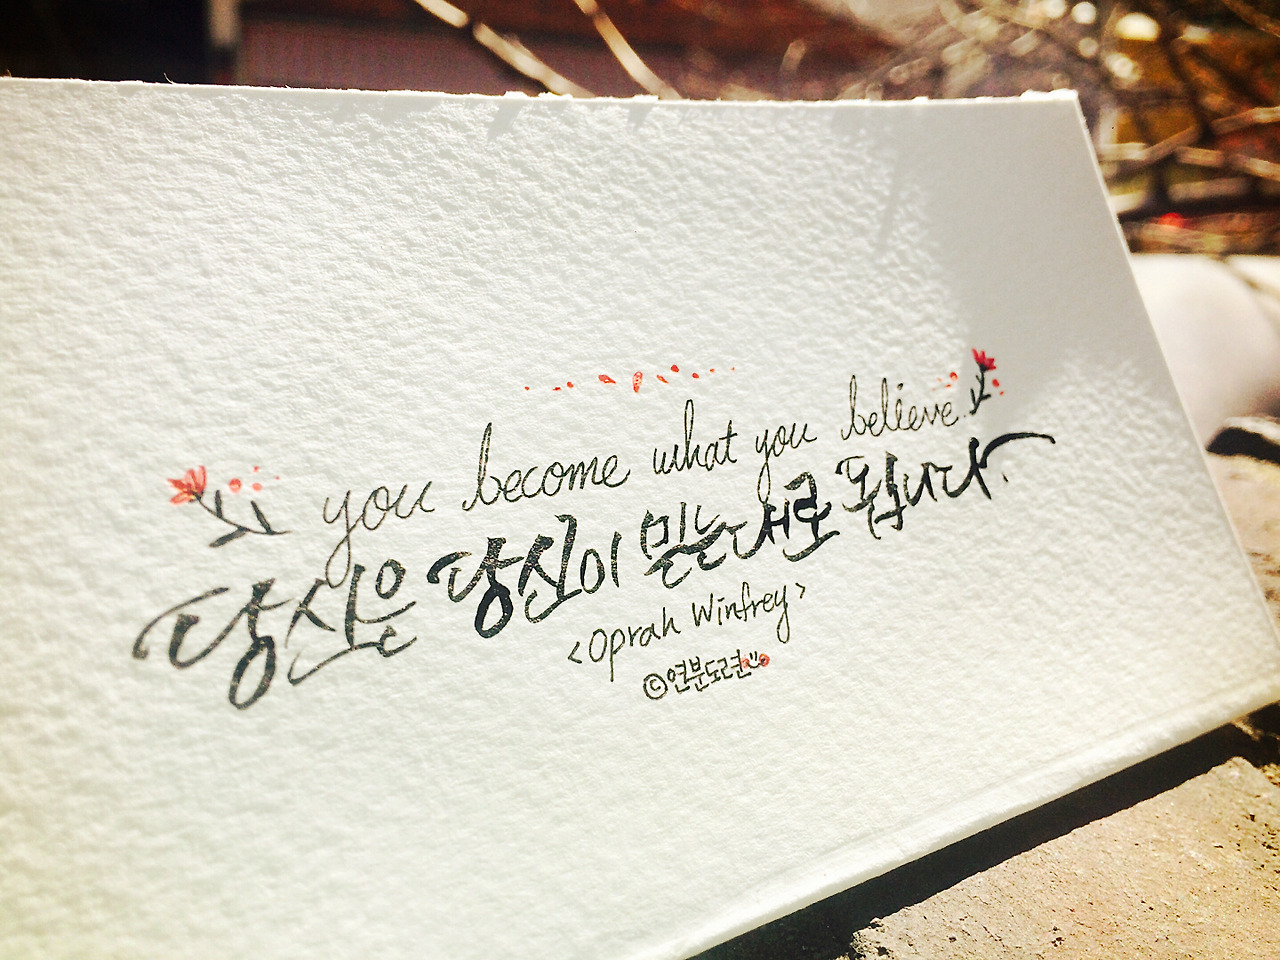 you become what you believe.
당신은 당신이 믿는대로 됩니다.
<Oprah Winfrey>
©연분도련